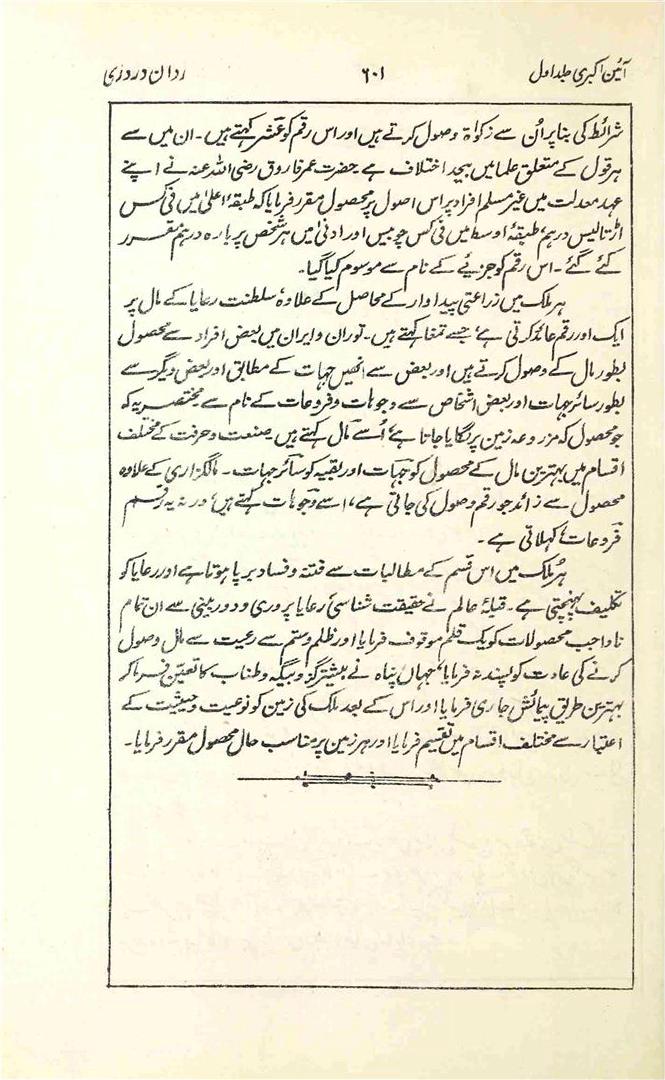 آئین اکبری جلد اول ۶۰۱ ردان در دزی
شرائط کی بنا پر اُن سے زکوٰۃ وصول کرتے ہیں اور اس رقم کو عشر کہتے ہیں۔ ان میں سے
ہر قول کے متعلق علما میں بیحد اختلاف ہے حضرت عمر فاروق رضی اللہ عنہ نے اپنے
عہد معدلت میں غیر مسلم افراد پر اس اصول پر محصول مقرر فرمایا کہ طبقۂ اعلیٰ میں فی کس
اڑتالیس درہم، طبقۂ اوسط میں فی کس چوبیس اور ادنیٰ میں ہر شخص پر بارہ درہم مقرر
کئے گئے۔ اس رقم کو جزیئے کے نام سے موسوم کیا گیا۔
ہر ملک میں زراعتی پیداوار کے محاصل کے علاوہ سلطنت رعایا کے مال پر
ایک اور رقم عائد کرتی ہے، جسے تمغا کہتے ہیں۔ توران و ایران میں بعض افراد سے محصول
بطور مال کے وصول کرتے ہیں اور بعض سے انھیں جہات کے مطابق اور بعض دیگر سے
بطور سائر جہات اور بعض اشخاص سے وجوہات و فروعات کے نام سے مختصر یہ کہ
جو محصول کہ مزروعہ زمین پر لگایا جاتا ہے اُسے مال کہتے ہیں صنعت و حرفت کے مختلف
اقسام میں بہترین مال کے محصول کو جہات اور بقیہ کو سائر جہات۔ مالگزاری کے علاوہ
محصول سے زائد جو رقم وصول کی جاتی ہے، اسے وجوہات کہتے ہیں، ورنہ یہ رقم
فروعات، کہلاتی ہے۔
ہر ملک میں اس قسم کے مطالبات سے فتنہ و فساد برپا ہوتا ہے اور رعایا کو
تکلیف پہنچتی ہے۔ قبلۂ عالم نے حقیقت شناسی، رعایا پروری و دور بینی سے ان تمام
ناواجب محصولات کو یک قلم موقوف فرمایا اور ظلم و ستم سے رعیت سے مال وصول
کرنے کی عادت کو پسند نہ فرمایا، جہاں پناہ نے بیشتر گز و بیگہ و طناب کا تعین فرما کر
بہترین طریق پیمائش جاری فرمایا اور اس کے بعد ملک کی زمین کو نوعیت و حیثیت کے
اعتبار سے مختلف اقسام میں تقسیم فرمایا اور ہر زمین پر مناسب حال محصول مقرر فرمایا۔